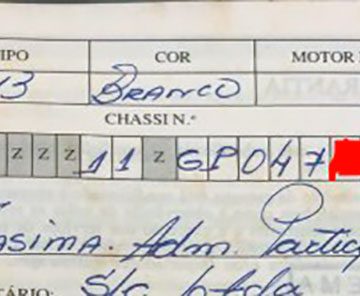 IPO COR MOTOR
13 BRANCO
CHASSI N.º
Z Z Z 1 1 Z G P 0 4 7
ASIMA. Adm. Partic
TÁRIO: S/C Ltda